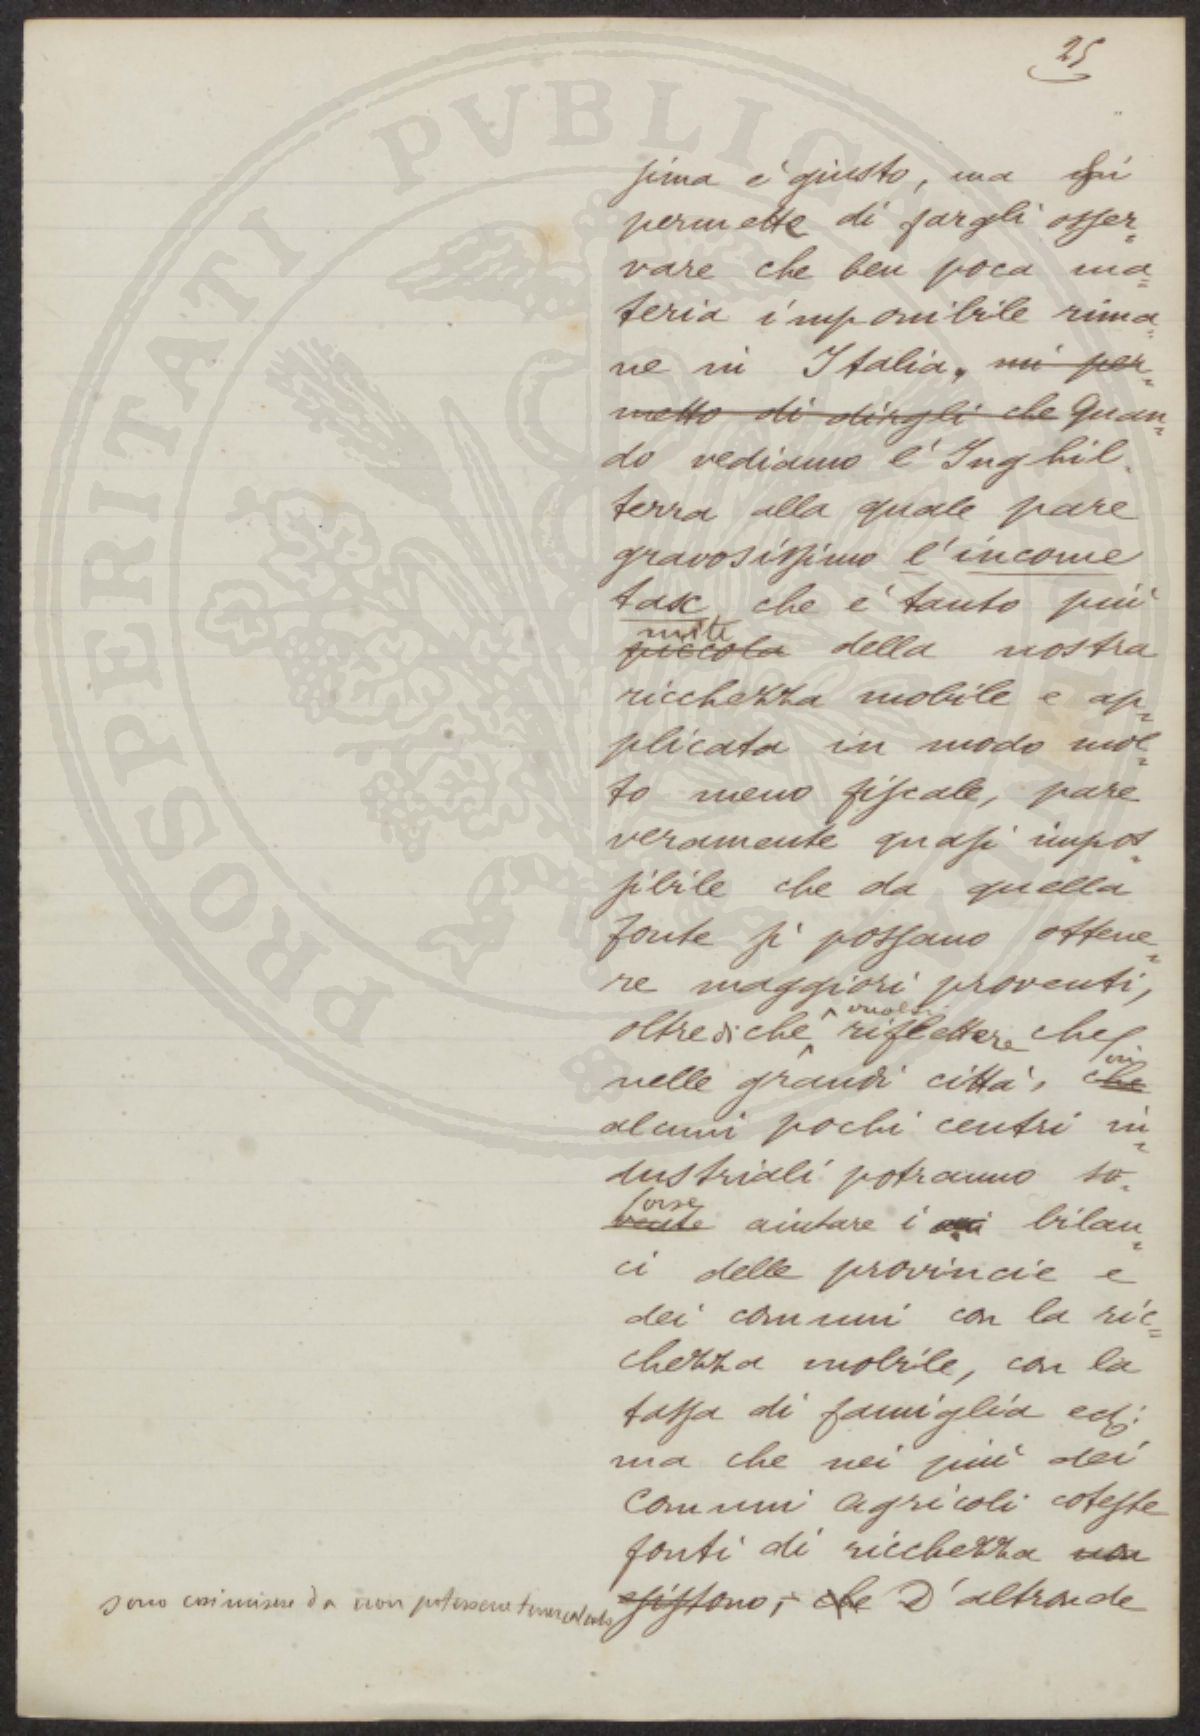 25
sima è giusto, ma mi
permette di fargli osser=
vare che ben poca ma=
teria imponibile rima=
ne in Italia. mi per=
metto di dirgli che Quan=
do vediamo l'Inghil=
terra alla quale pare
gravosissimo l'income
tax che è tanto più
mite
piccola della nostra
ricchezza mobile e ap=
plicata in modo mol=
to meno fiscale, pare
veramente quasi impos=
sibile che da quella
fonte si possano ottene=
re maggiori proventi,
vuolsi
oltrediché riflettere che
nelle grandi città, che
in
alcuni pochi centri in=
dustriali potranno so=
forse
vente aiutare i bilan=
ci delle provincie e
dei comuni con la ric=
chezza mobile, con la
tassa di famiglia ed:
ma che nei più dei
comuni agricoli coteste
fonti di ricchezza non
esistono, che D'altronde
sono così misere da non potersene tener calcolo
PROSPERITATI PVBLICAE